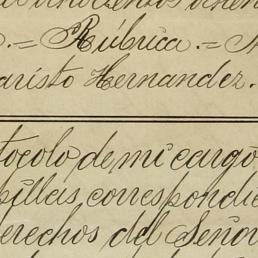 .= Rúbrica.=
aristo Hernandez.
tocolo de mi cargo
pillas correspondie
erechos del Señor